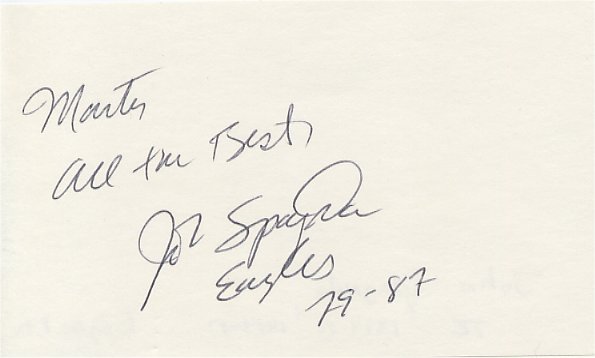 Marty
All the Best,
John Spagnola
Eagles
79-87